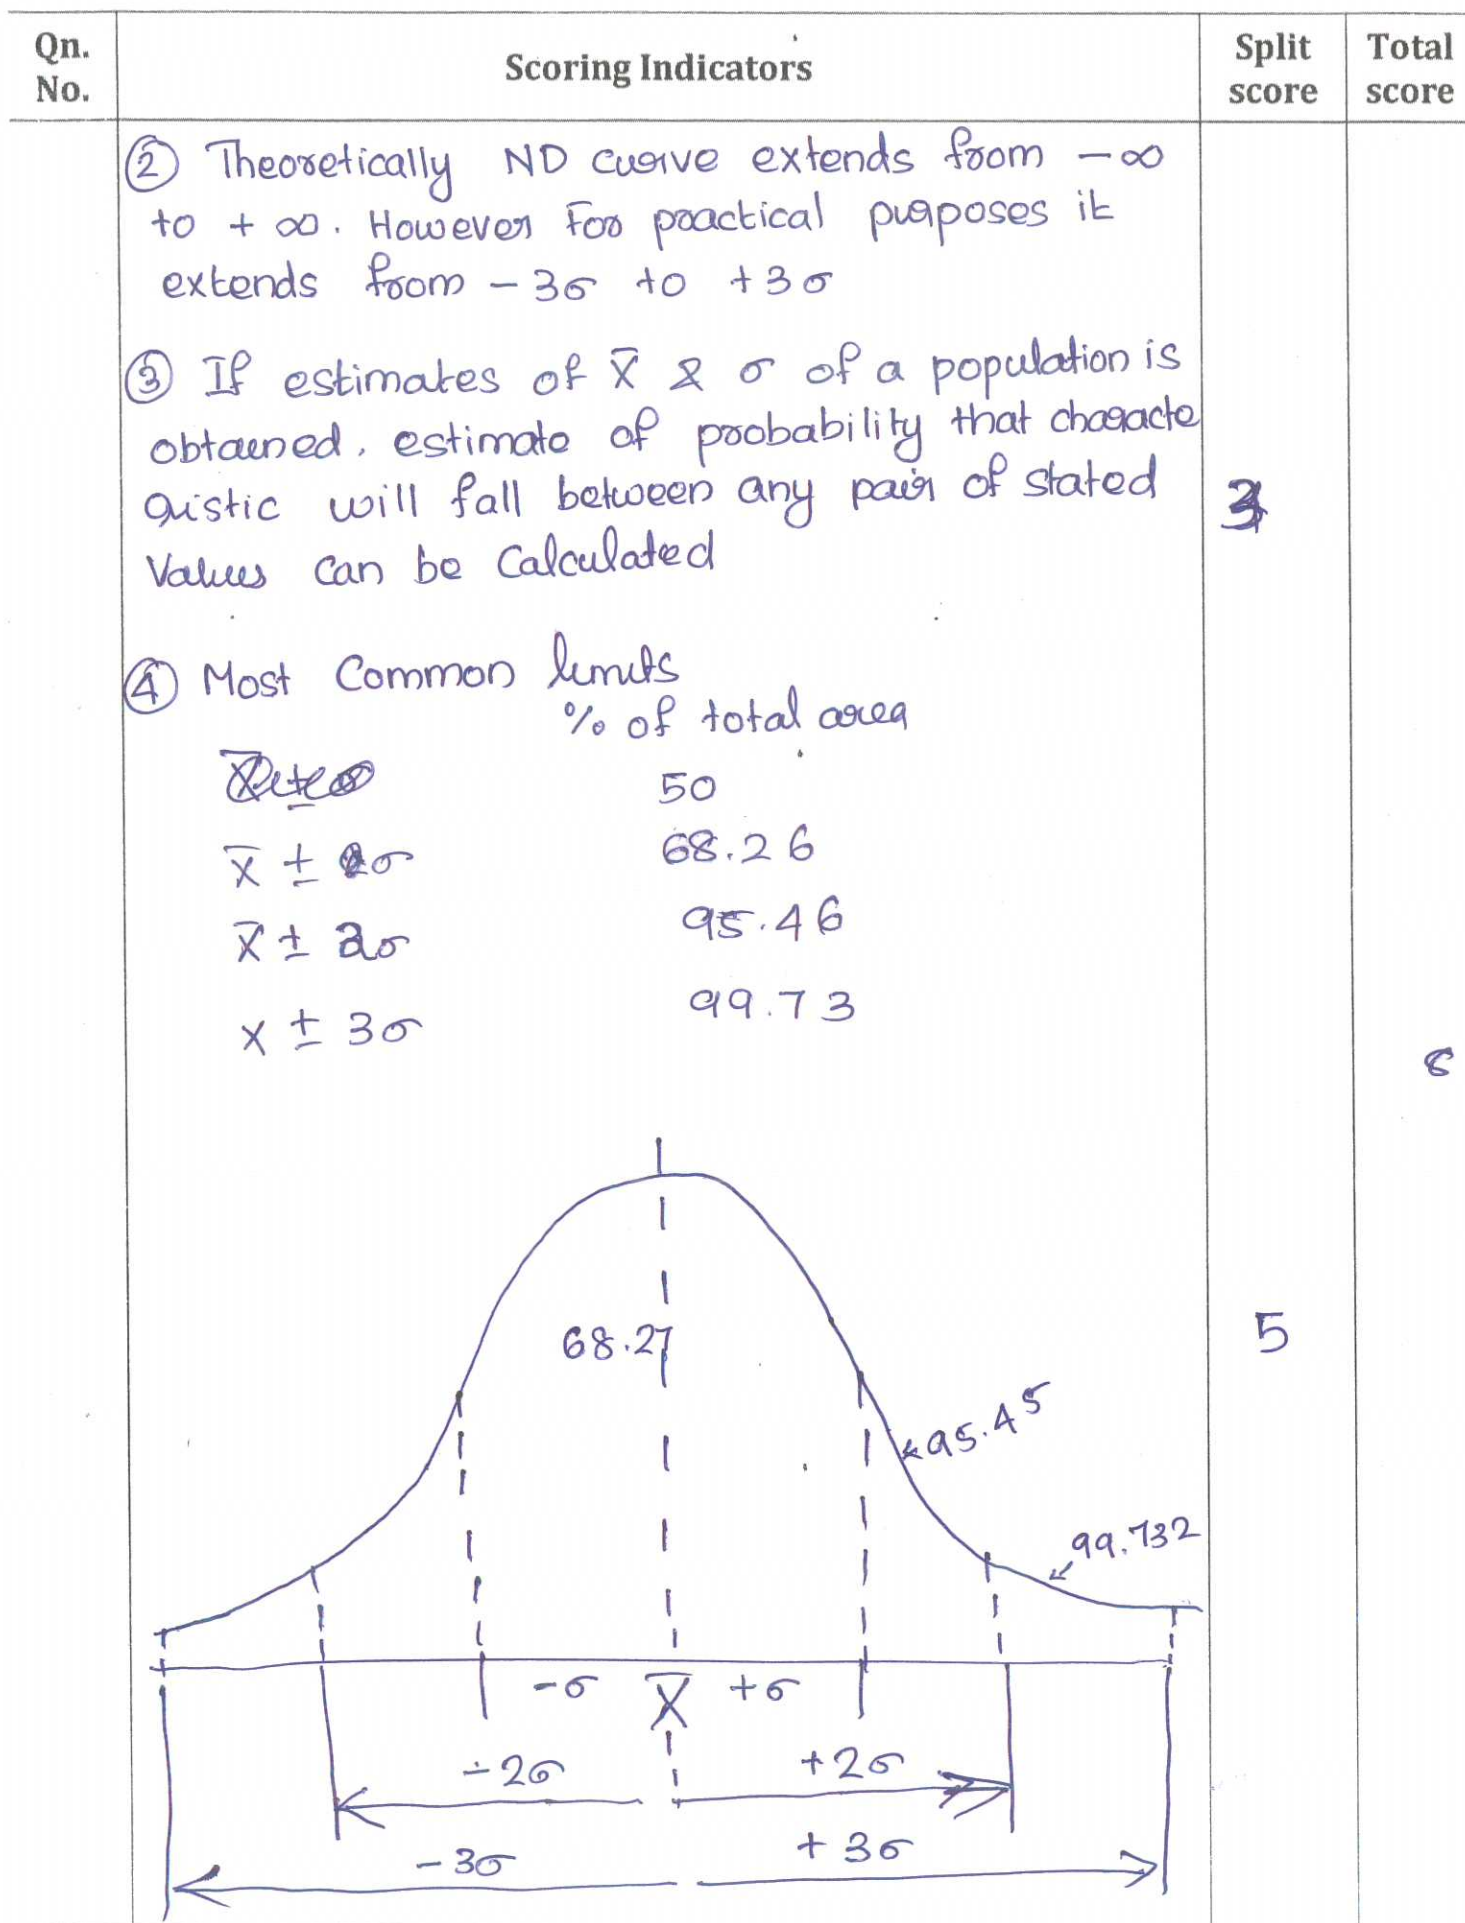 Qn. No.
Scoring Indicators
Split score
Total score
② Theoretically ND curve extends from -∞
to + ∞. However For practical purposes it
extends from - 3σ to + 3σ
③ If estimates of X̄ & σ of a population is
obtained, estimate of probability that characte
ristic will fall between any pair of stated
Values can be Calculated
3
④ Most Common limits
% of total area
50
X̄ ± σ 68.26
X̄ ± 2σ 95.46
X ± 3σ 99.73
68.27
5
95.45
99.732
-σ X̄ +σ
-2σ +2σ
-3σ +3σ